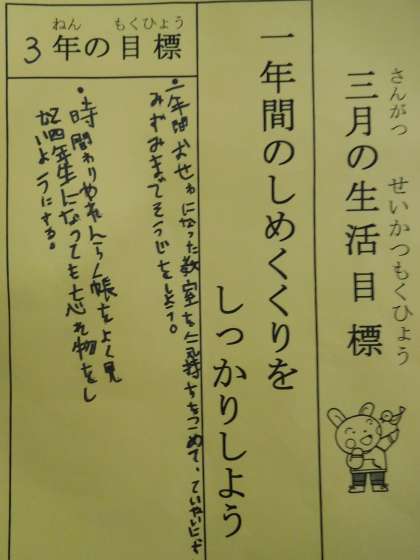 さんがつ せいかつもくひょう
三月の生活目標
一年間のしめくくりを
しっかりしよう
ねん もくひょう
3年の目標
・一年間おせわになった教室を気持ちをこめて、ていねいにす
みずみまでそうじをしよう。
・時間わりやれんらく帳をよく見
四年生になっても忘れ物をし
ないようにする。